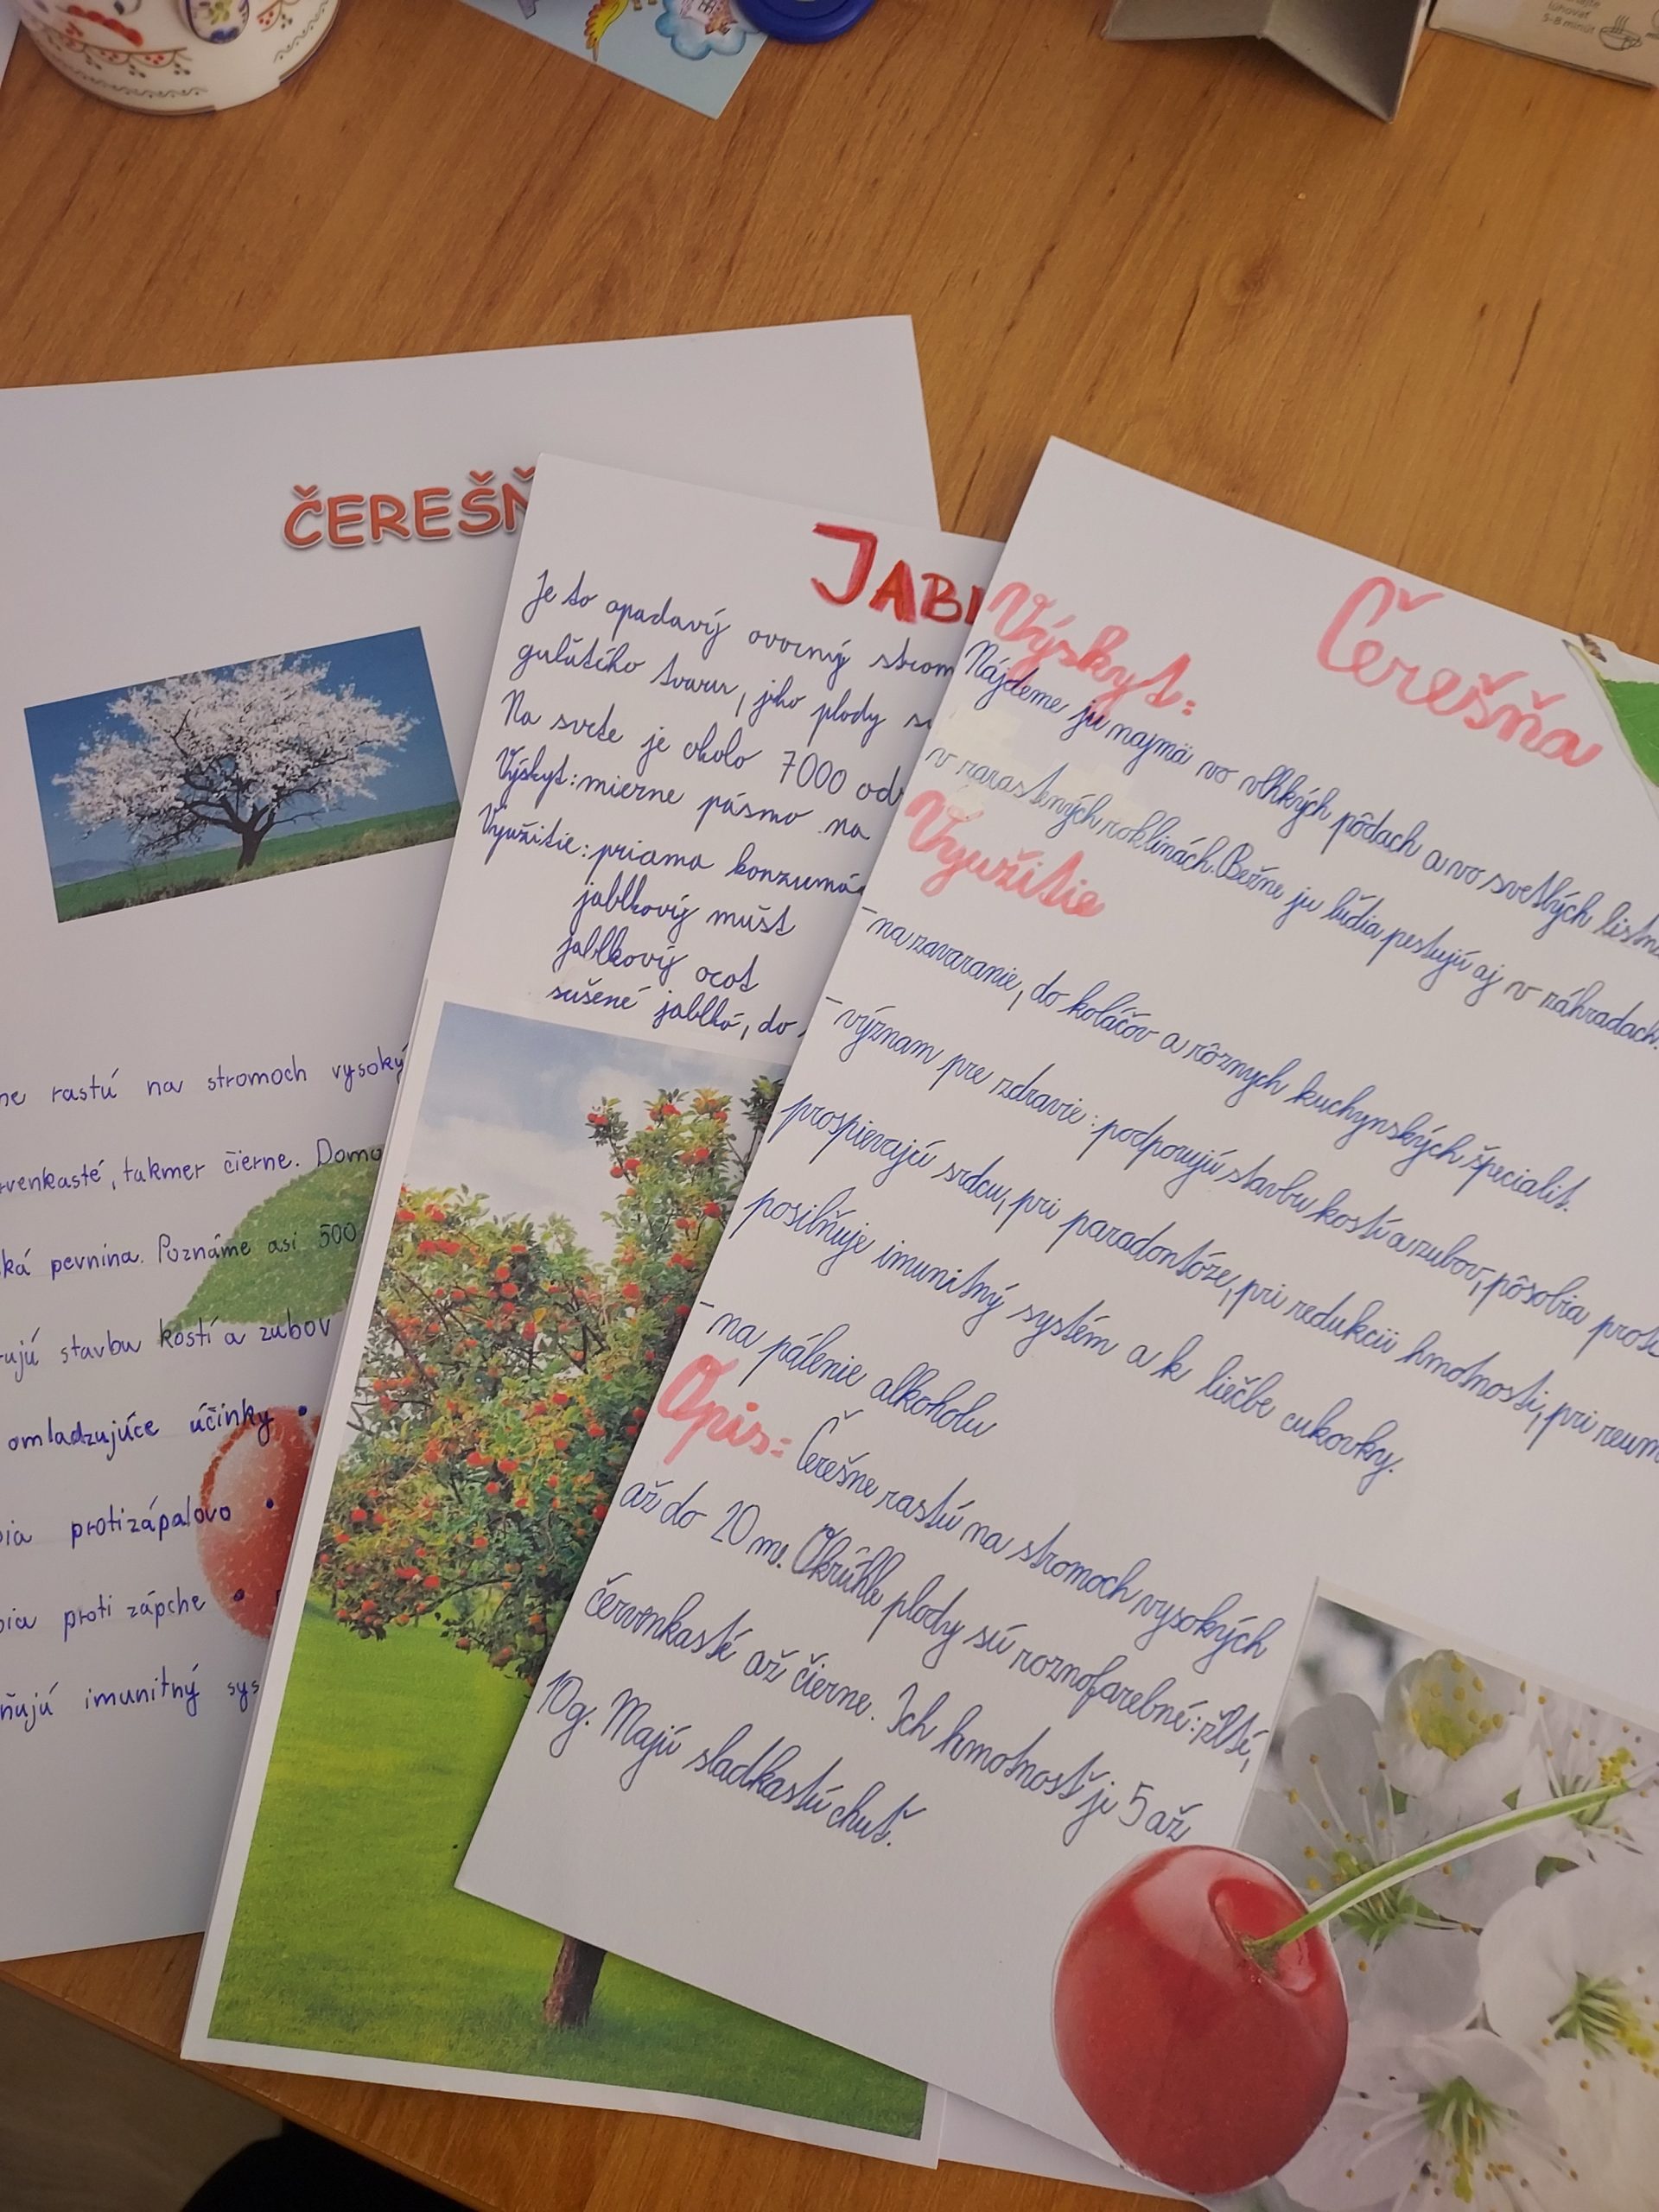 ČEREŠŇ
ne rastú na stromoch vysoký
venkasté, takmer čierne. Domo
ká pevnina. Poznáme asi 500
ujú stavbu kostí a zubov
omladzujúce účinky •
ia protizápalovo •
ia proti zápche •
ňujú imunitný sys
JABL
Je to opadavý ovocný strom
guľatého tvaru, jeho plody sú
Na svete je okolo 7000 od
Výskyt: mierne pásmo na
Využitie: priama konzumá
jablkový mušt
jablkový ocot
sušené jablká, do
Čerešňa
Výskyt:
Nájdeme ju najmä vo vlhkých pôdach a vo svetlých listna
v zarastených roklinách. Bežne ju ľudia pestujú aj v záhradach.
Využitie
- na zavaranie, do koláčov a rôznych kuchynských špecialít.
- význam pre zdravie: podporujú stavbu kostí a zubov, pôsobia proti
prospievajú srdcu, pri paradontóze, pri redukcii hmotnosti, pri reum
posilňuje imunitný systém a k liečbe cukrovky.
- na pálenie alkoholu
Opis: Čerešne rastú na stromoch vysokých
až do 20 m. Okrúhle plody sú roznofarebné: žlté,
červenkasté až čierne. Ich hmotnosť je 5 až
10g. Majú sladkastú chuť.
5-8 minút